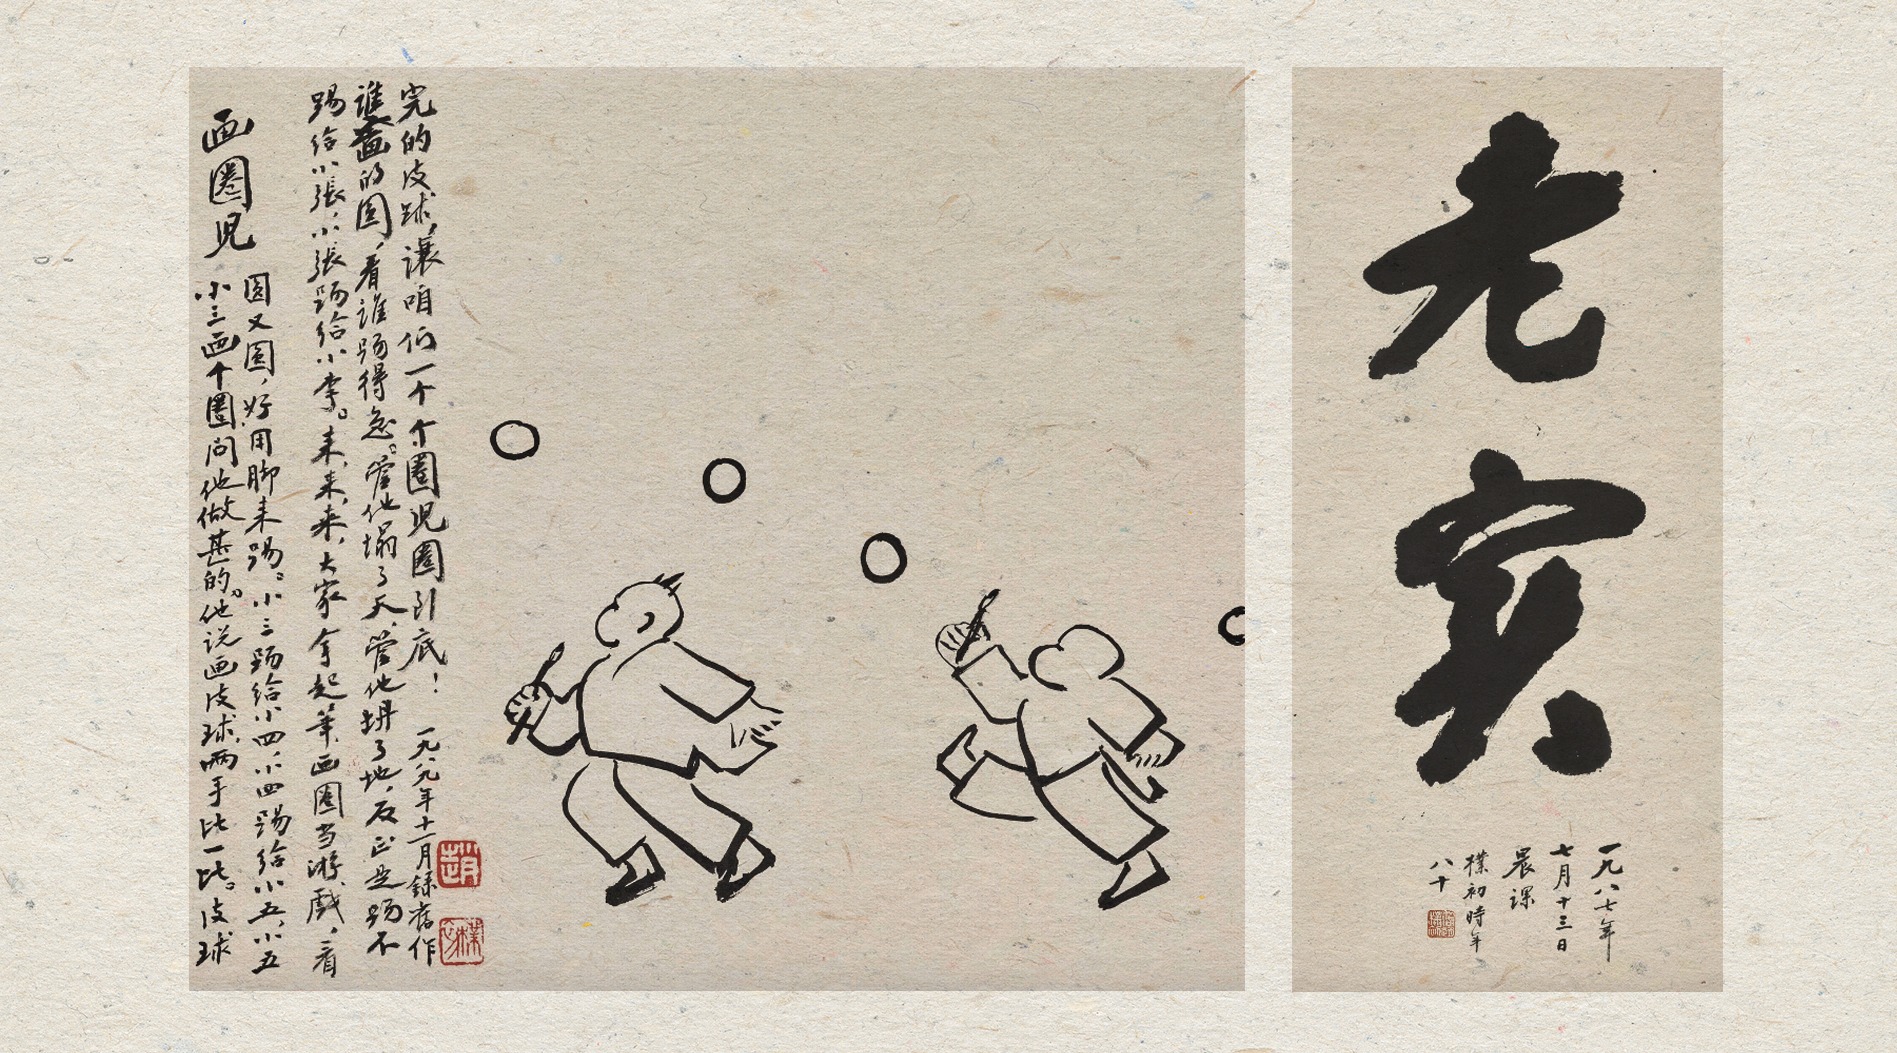 画圈児
小三画个圈问他做甚的。他说画皮球，两手比一比。皮球
圆又圆，好用脚来踢。小三踢给小四，小四踢给小五，小五
踢给小張，小張踢给小李。来，来，来，大家拿起筆，画圈当游戏，看
谁画的圆，看谁踢得急。管他塌了天，管他坍了地，反正是踢不
完的皮球，讓咱们一个个圈児圈到底！一九八九年十一月録舊作
趙
樸初
老实
一九八七年
七月十三日
晨课
樸初時年
八十